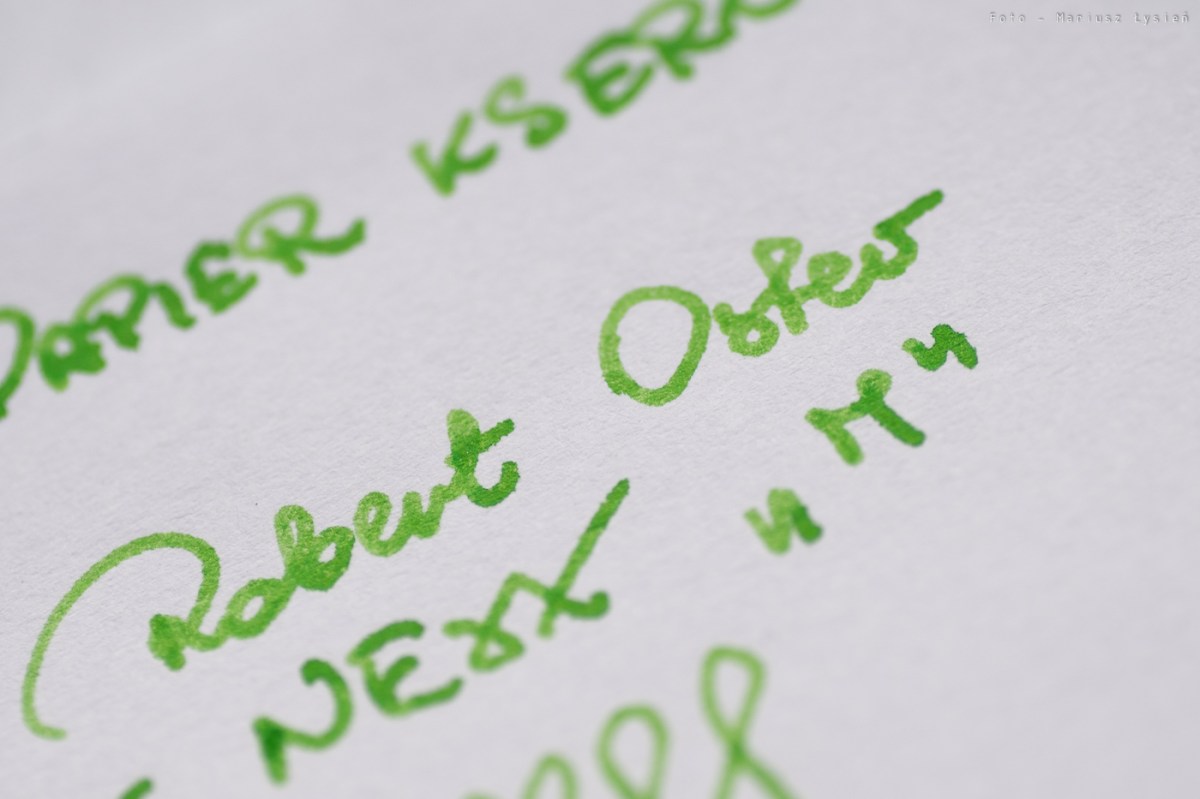 Foto - Mariusz Łysień
PAPIER KSERO
Robert Oster
"M"